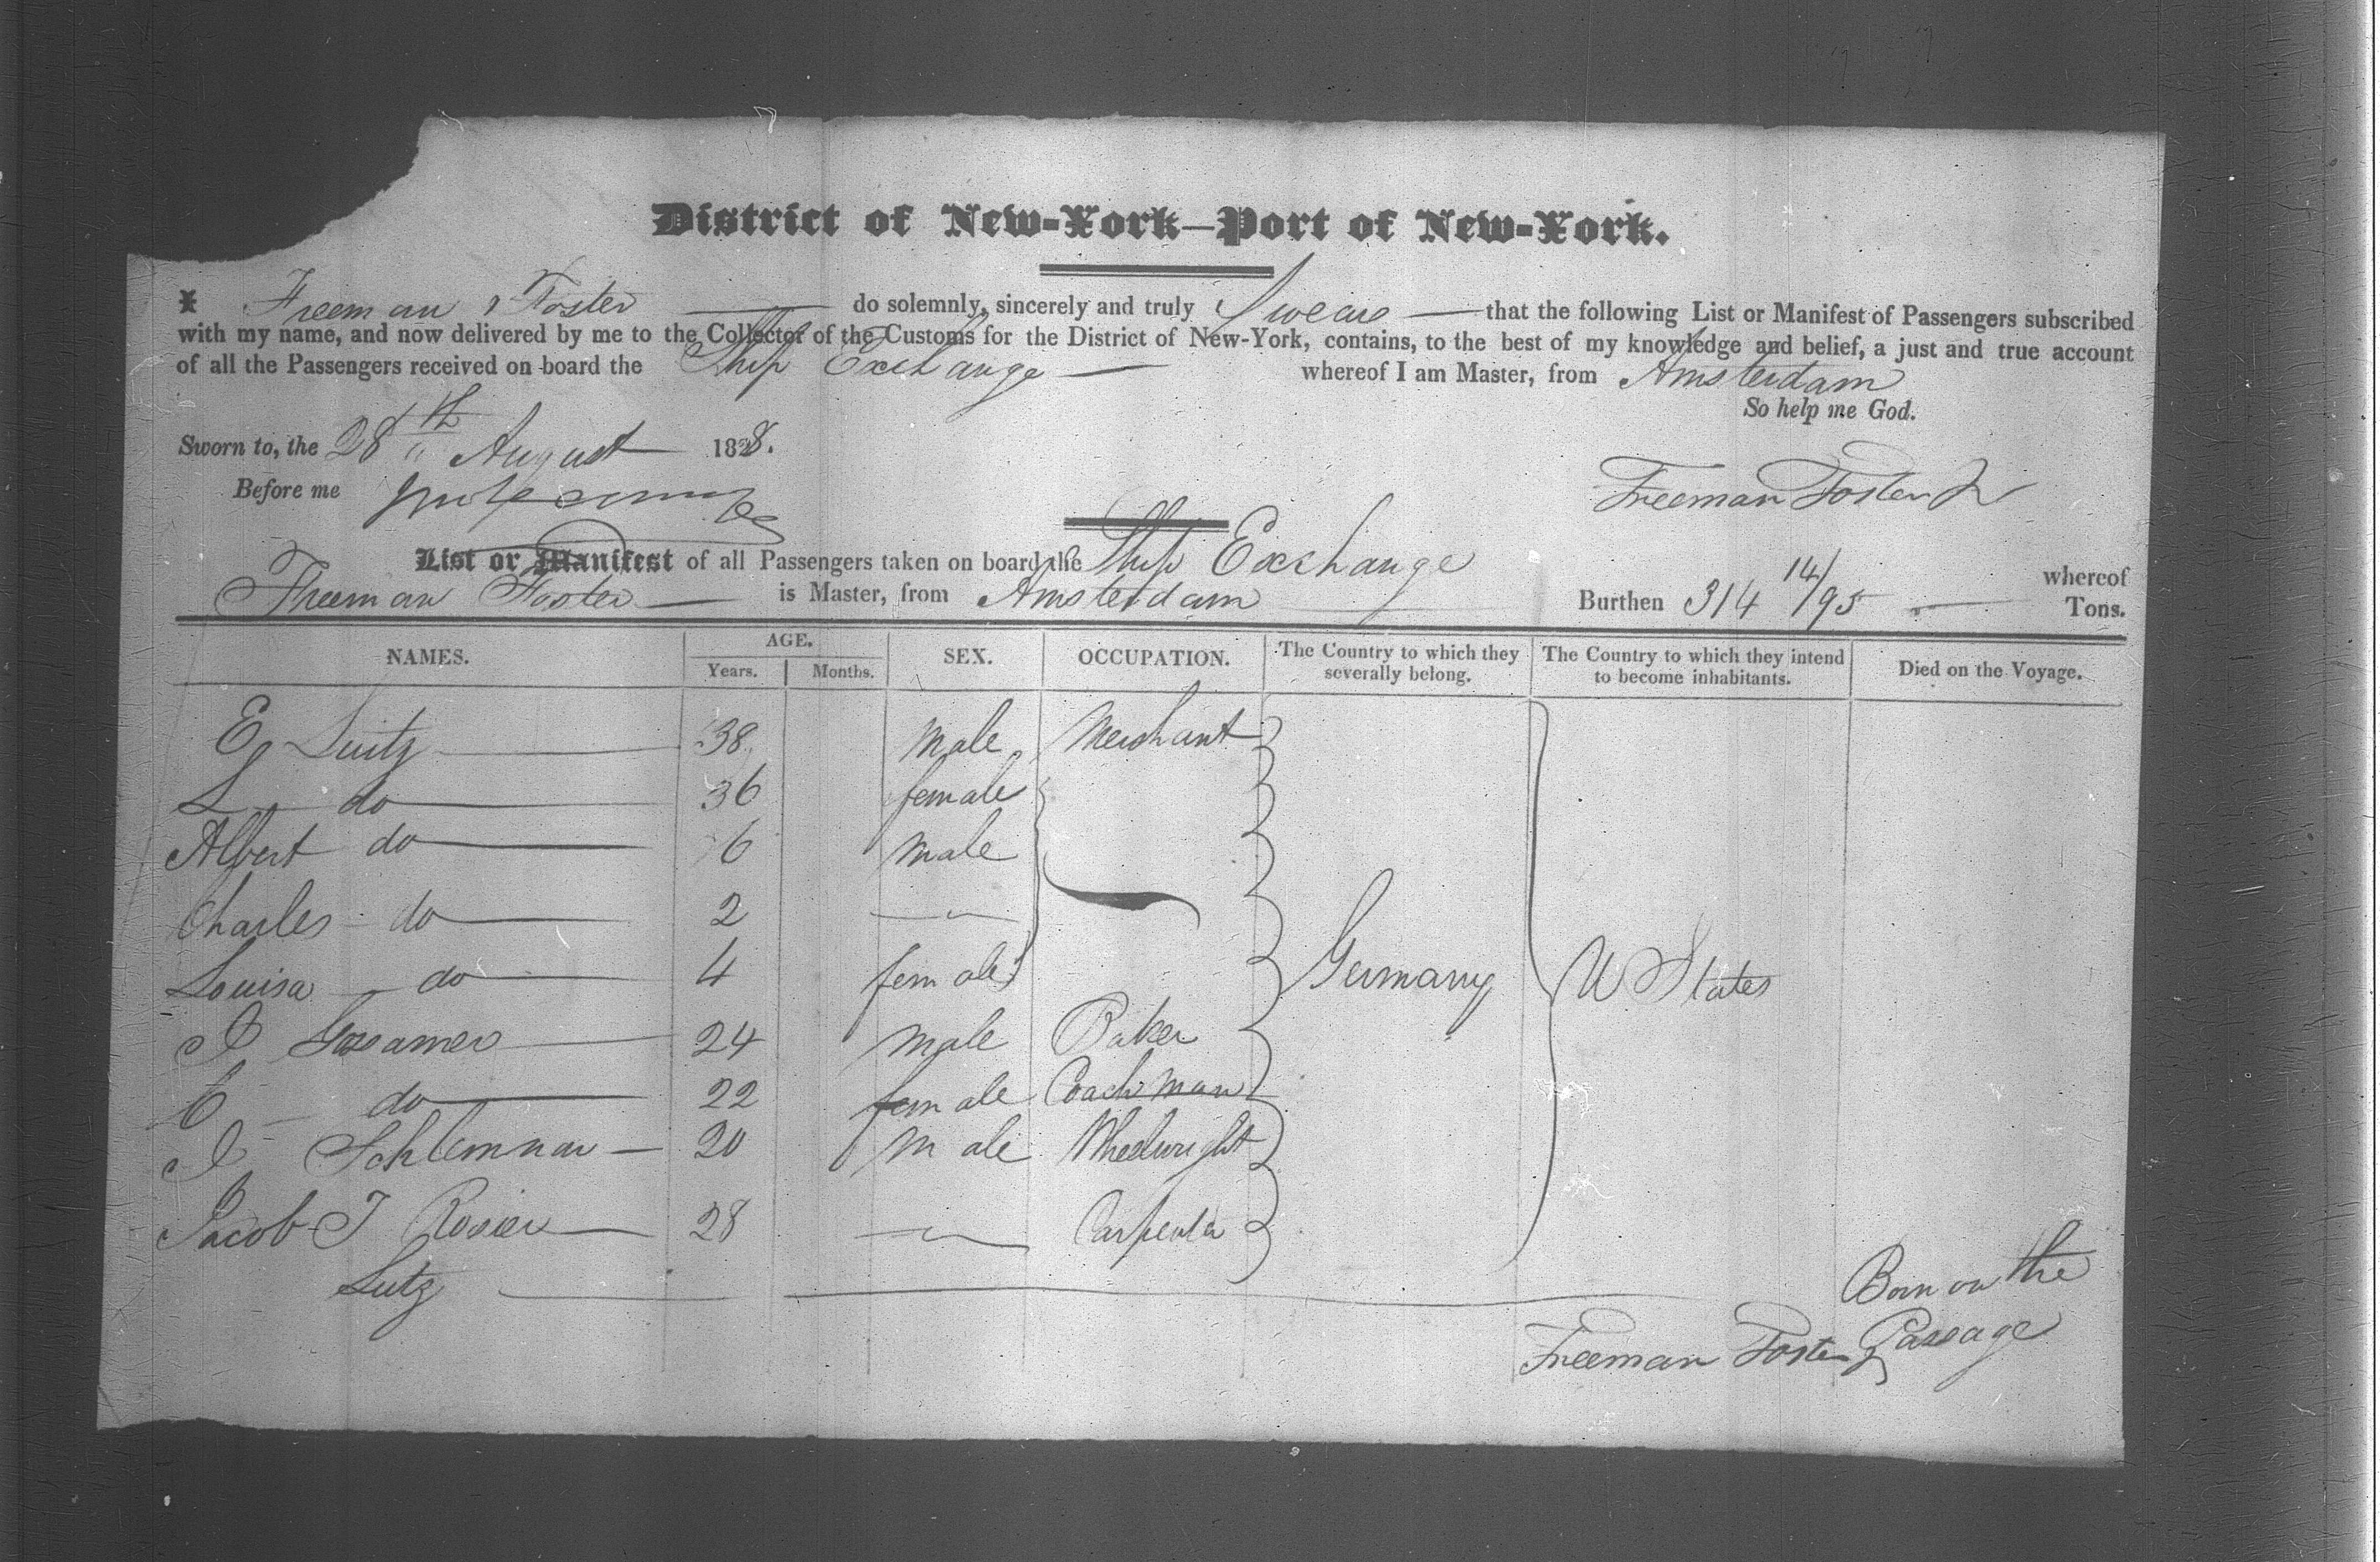 District of New-York—Port of New-York.
I Freeman Foster do solemnly, sincerely and truly Swear that the following List or Manifest of Passengers subscribed
with my name, and now delivered by me to the Collector of the Customs for the District of New-York, contains, to the best of my knowledge and belief, a just and true account
of all the Passengers received on board the Ship Exchange whereof I am Master, from Amsterdam
So help me God.
Sworn to, the 28th August 1828.
Before me
Freeman Foster Jr
List or Manifest of all Passengers taken on board the Ship Exchange whereof
Freeman Foster is Master, from Amsterdam Burthen 314 14/95 Tons.
NAMES. AGE. SEX. OCCUPATION. The Country to which they severally belong. The Country to which they intend to become inhabitants. Died on the Voyage.
Years. Months.
E Luitz 38 Male Merchant
L do 36 female
Albert do 6 Male
Charles do 2 —"—
Louisa do 4 female Germany U States
I 24 Male Baker
C do 22 female Coachman
I Schlemmar 20 Male Wheelwright
Jacob I Rosier 28 —"— Carpenter
Lutz Born on the
Passage
Freeman Foster